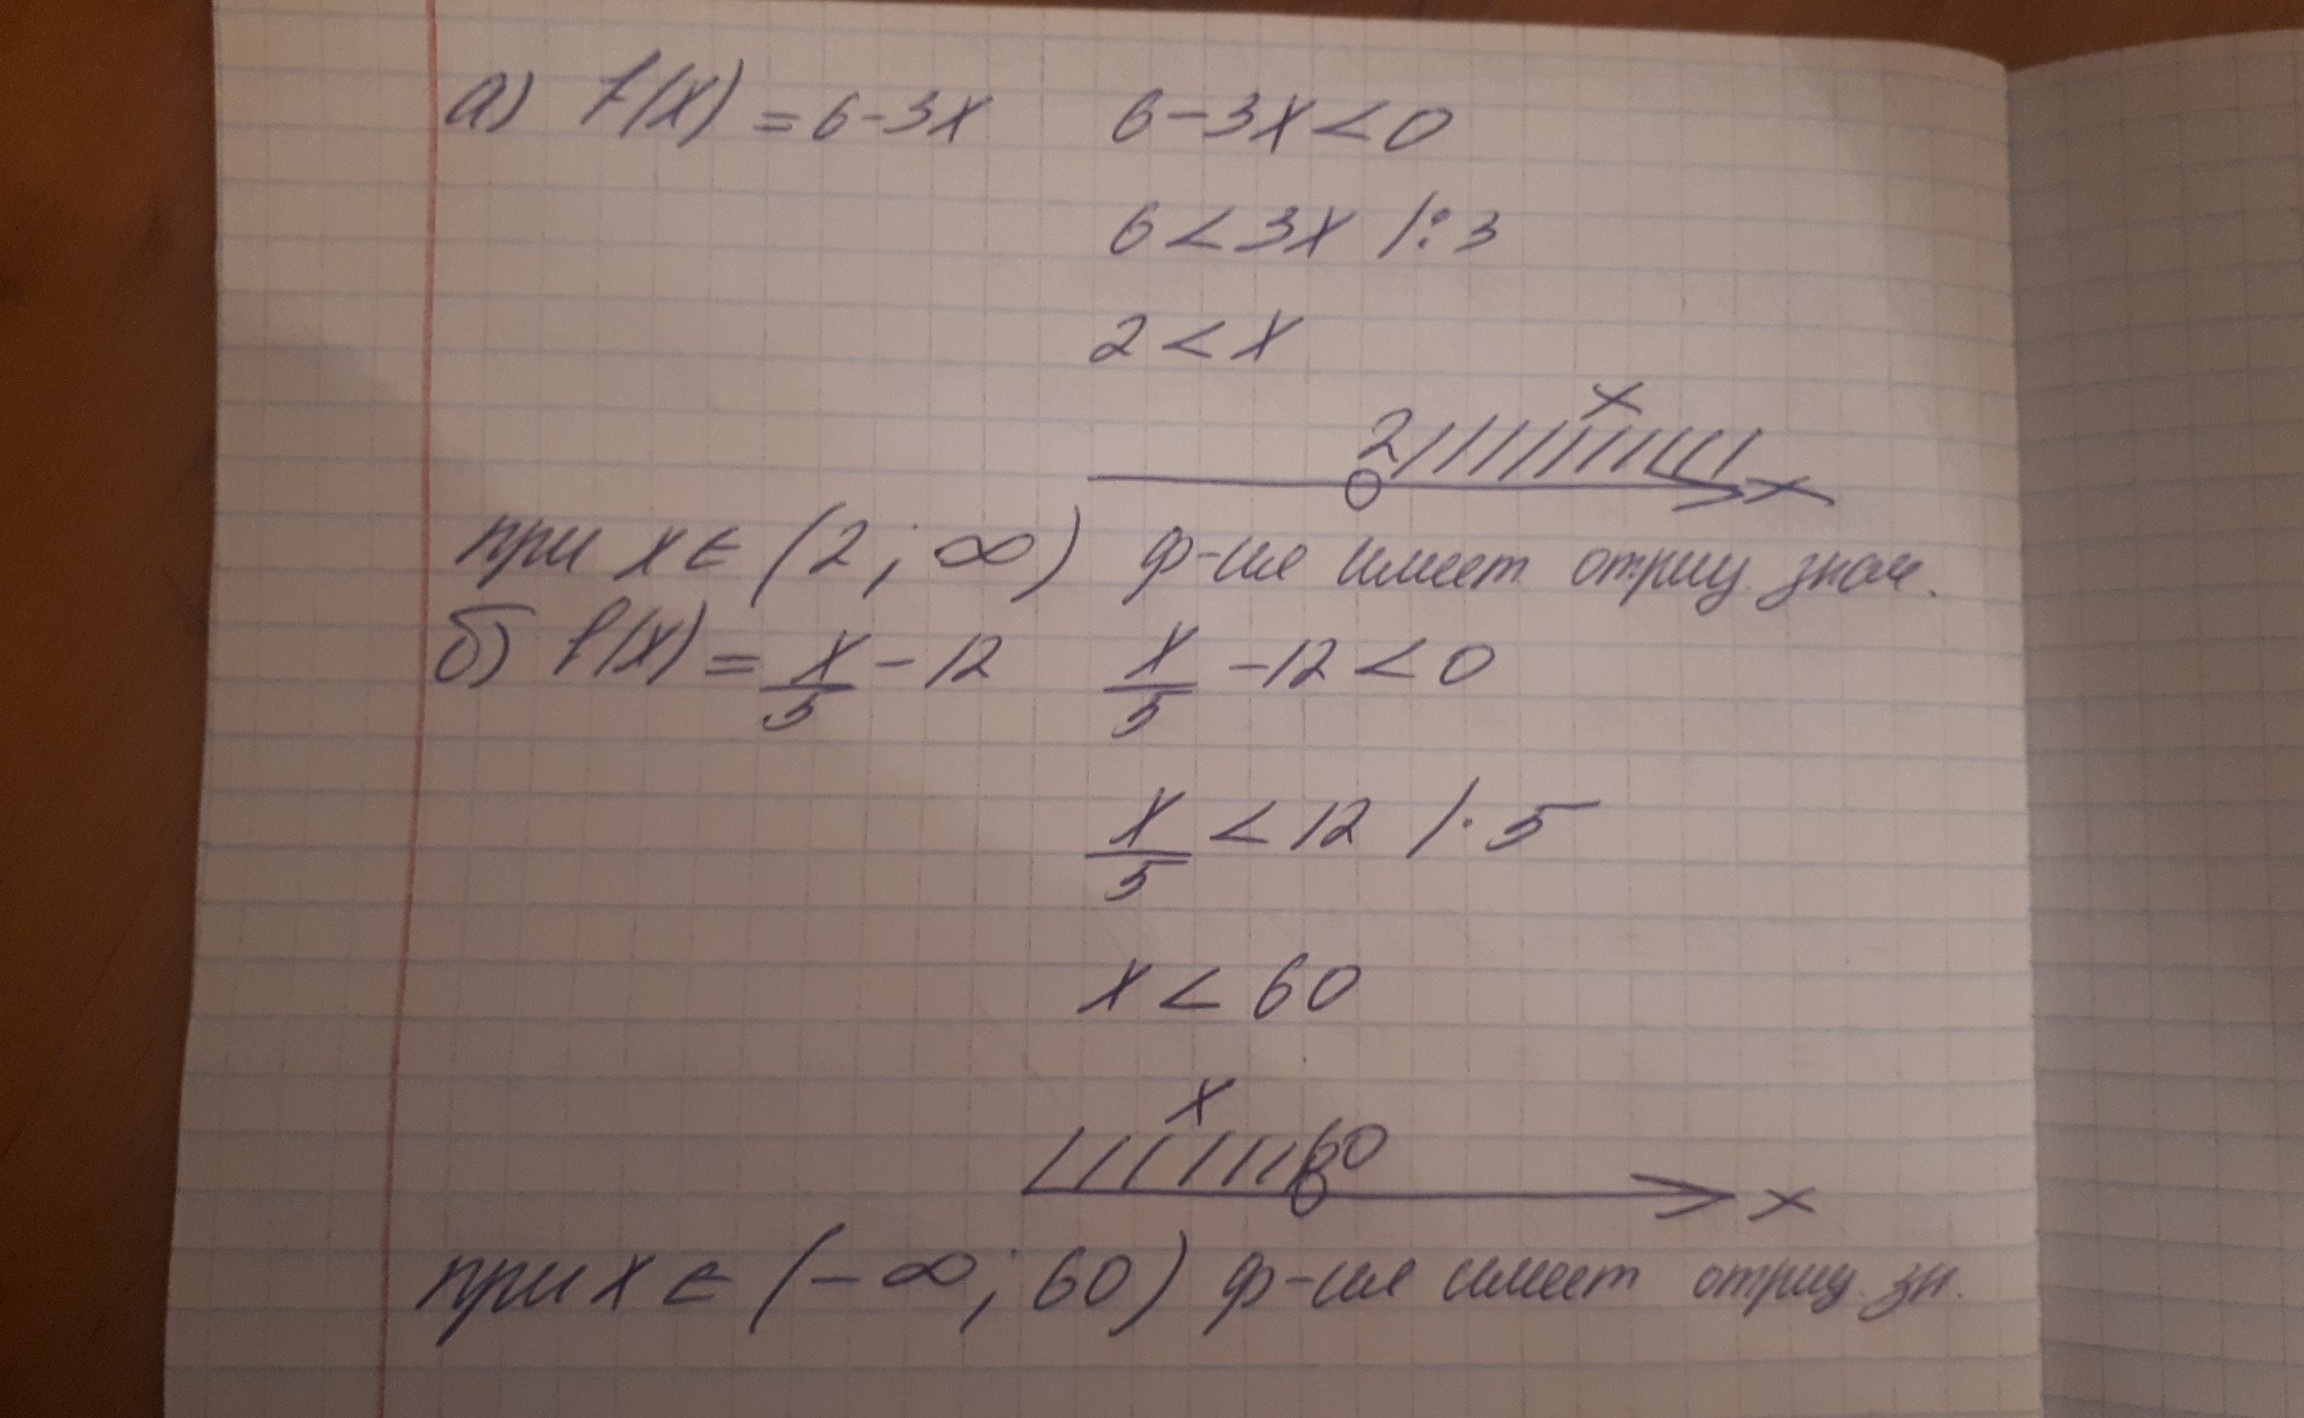 а) f(x) = 6-3x 6-3x<0
6<3x /:3
2<x
x
2
x
при x∈(2;∞) ф-ия имеет отриц. знач.
б) f(x) = x/5 - 12 x/5 -12<0
x/5 <12 /·5
x<60
x
60
x
при x∈(-∞; 60) ф-ия имеет отриц. зн.